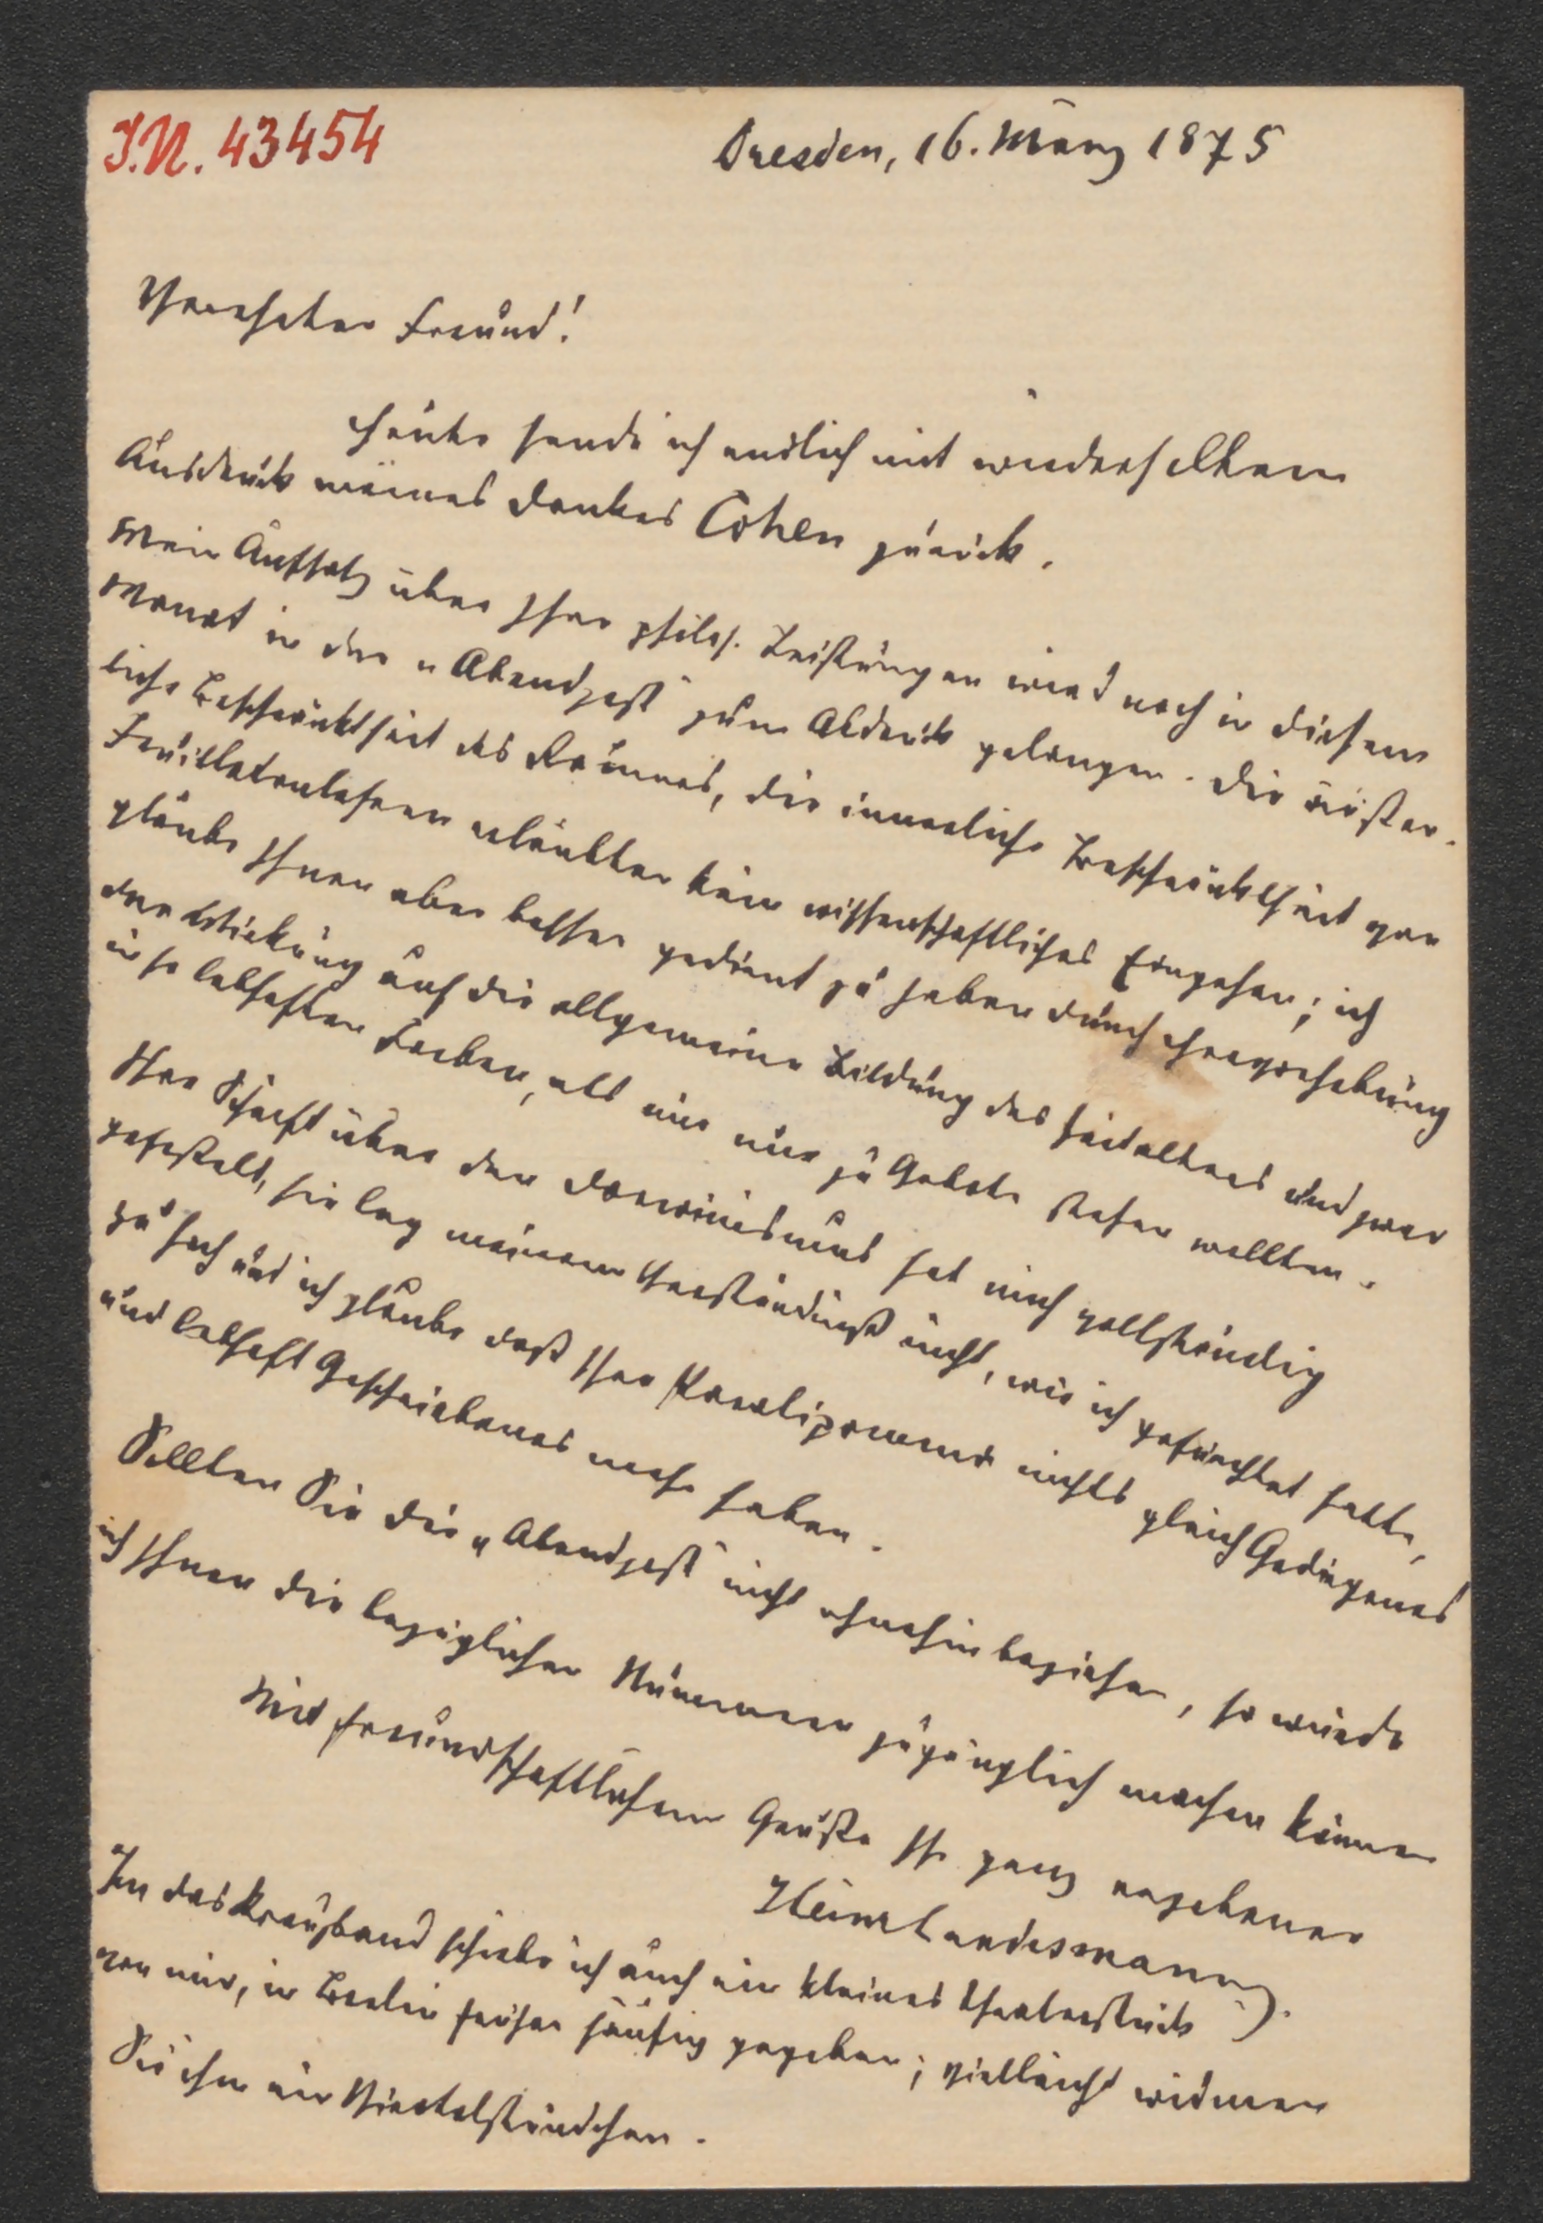 I.N. 43454
Dresden, 16. März 1875
Verehrter Freund!
Heute sende ich endlich mit wiederholtem
Ausdruck meines Dankes Cohen zurück.
Mein Aufsatz über Ihre philos. Leistungen wird noch in diesem
Monat in der „Abendpost" zum Abdruck gelangen. Die äußer-
liche Beschränktheit des Raumes, die innerliche Beschränktheit von
Feuilletonlesern erlaubten kein wissenschaftliches Eingehen; ich
glaube Ihnen aber besser gedient zu haben durch Hervorhebung
der Wirkung auf die allgemeine Bildung des Zeitalters und zwar
in so lebhaften Farben, als mir nur zu Gebote stehen wollten.
Ihre Schrift über den Darwinismus hat mich vollständig
gefesselt, sie lag meinem Verständniß nicht, wie ich gefürchtet hatte,
zu hoch und ich glaube daß Ihre Paralipomena nichts gleich Gediegenes
und lebhaft Geschriebenes mehr haben.
Sollten Sie die „Abendpost" nicht ohnehin beziehen, so würde
ich Ihnen die bezüglichen Nummern zugänglich machen können
Mit freundschaftlichem Gruße Ihr ganz ergebener
Heinr Landesmann
In das Kreuzband schiebe ich auch ein kleines Theaterstück
von mir, in Berlin früher häufig gegeben; vielleicht widmen
Sie ihm ein Viertelstündchen.